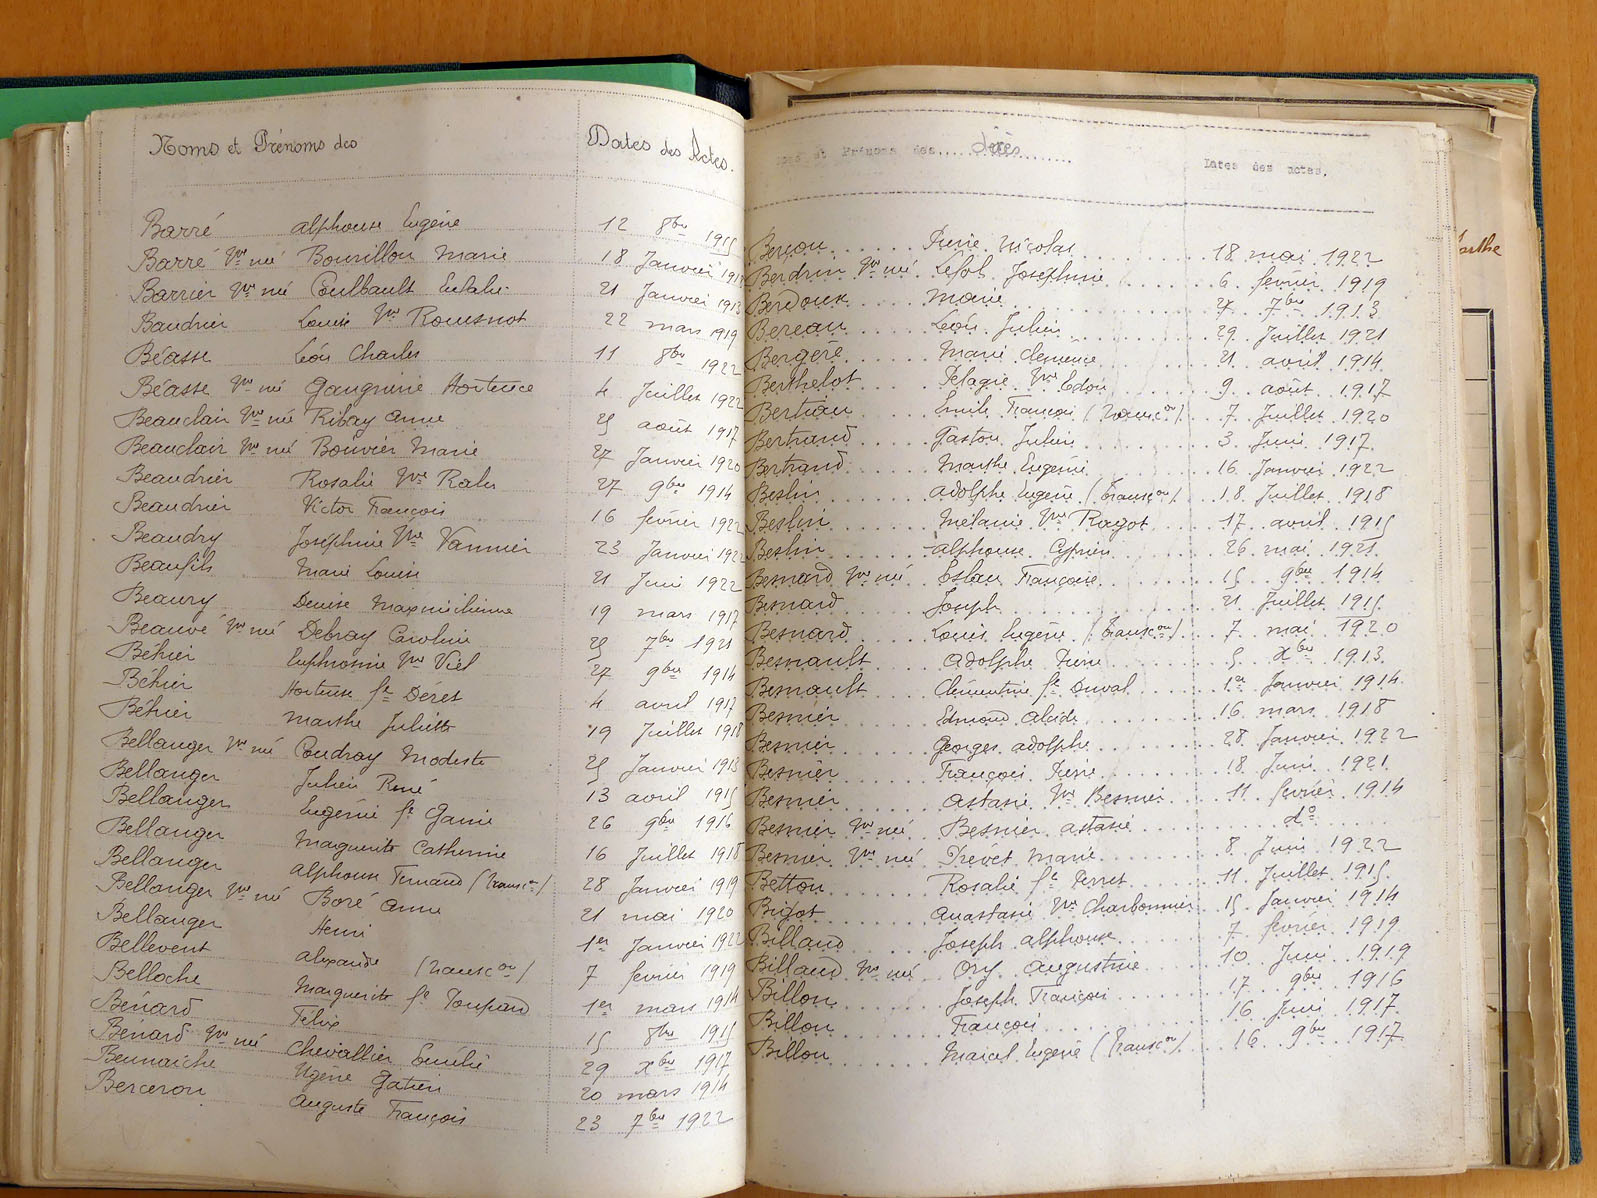 Noms et Prénoms des
Dates des Actes.
Barré alphonse Eugène 12 8bre 1915
Barré Vve née Bourillon Marie 18 Janvier
Barrier Vve née Coulbault Eulalie 21 Janvier 1913
Baudrier Louise Vve Rousnot 22 mars 1919
Béasse Léon Charles 11 8bre 1922
Béasse Vve née Hortence 4 Juillet 1922
Beauclair Vve née Ribay anne 25 août 1917
Beauclair Vve née Bouvier Marie 27 Janvier 1920
Beaudrier Rosalie Vve 27 9bre 1914
Beaudrier Victor François 16 février 1922
Beaudry Joséphine Vve Vannier 23 Janvier 1922
Beaufils Marie Louise 21 Juin 1922
Beaury Denise Maximilienne 19 mars 1917
Beauvé Vve née Debray Caroline 25 7bre 1921
Béhier Euphrosine Vve Viel 27 9bre 1914
Béhier Hortense fe Déret 4 avril 1917
Béhier Marthe Juliette 19 Juillet 1918
Bellanger Vve née Coudray Modeste 25 Janvier 1913
Bellanger Julien René 13 avril 1915
Bellanger Eugénie fe 26 9bre 1916
Bellanger Marguerite Catherine 16 Juillet 1918
Bellanger alphonse Fernand (Transcon) 28 Janvier 1919
Bellanger Vve née Boré anne 21 mai 1920
Bellanger Henri 1er Janvier 1922
Bellevent alexandre (Transcon) 7 février 1919
Belloche Marguerite fe Poupard 1er mars 1914
Bénard Félix 15 8bre 1915
Benard Vve née Chevallier Emélie 29 xbre 1917
Bennaiche Ugène Gatien 20 mars 1914
Berceron Auguste François 23 7bre 1922
et Prénoms des décès
Dates des actes.
Bercou Pierre Nicolas 18 mai 1922
Berdrin Vve née Lefol Joséphine 6 février 1919
Berdoux Marie 27 7bre 1913
Bereau Léon Julien 29 Juillet 1921
Bergère Marie Clémence 21 avril 1914
Berthelot Pélagie Vve Edon 9 août 1917
Bertrau Emile François (Transcon) 7 Juillet 1920
Bertrand Gaston Julien 3 Juin 1917
Bertrand Marthe Eugénie 16 Janvier 1922
Beslin adolphe Eugène (Transcon) 18 Juillet 1918
Beslin Mélanie Vve Ragot 17 avril 1915
Beslin alphonse Cyprien 26 mai 1921
Besnard Vve née Eslau Françoise 15 9bre 1914
Besnard Joseph 21 Juillet 1915
Besnard Louis Eugène (Transcon) 7 mai 1920
Besnault adolphe Pierre 5 Xbre 1913
Besnault Clémentine fe Duval 1er Janvier 1914
Besnier Edmond alcide 16 mars 1918
Besnier Georges adolphe 28 Janvier 1922
Besnier François Pierre 18 Juin 1921
Besnier astasie Vve Besnier 11 février 1914
Besnier Vve née Besnier astasie do
Besnier Vve née Prévet Marie 8 Juin 1922
Betton Rosalie fe Perret 11 Juillet 1915
Bigot anastasie Vve Charbonnier 15 Janvier 1914
Billaud Joseph alphonse 7 février 1919
Billaud Vve née Ory augustine 10 Juin 1919
Billon Joseph François 17 9bre 1916
Billon François 16 Juin 1917
Billon Marcel Eugène (Transcon) 16 9bre 1917